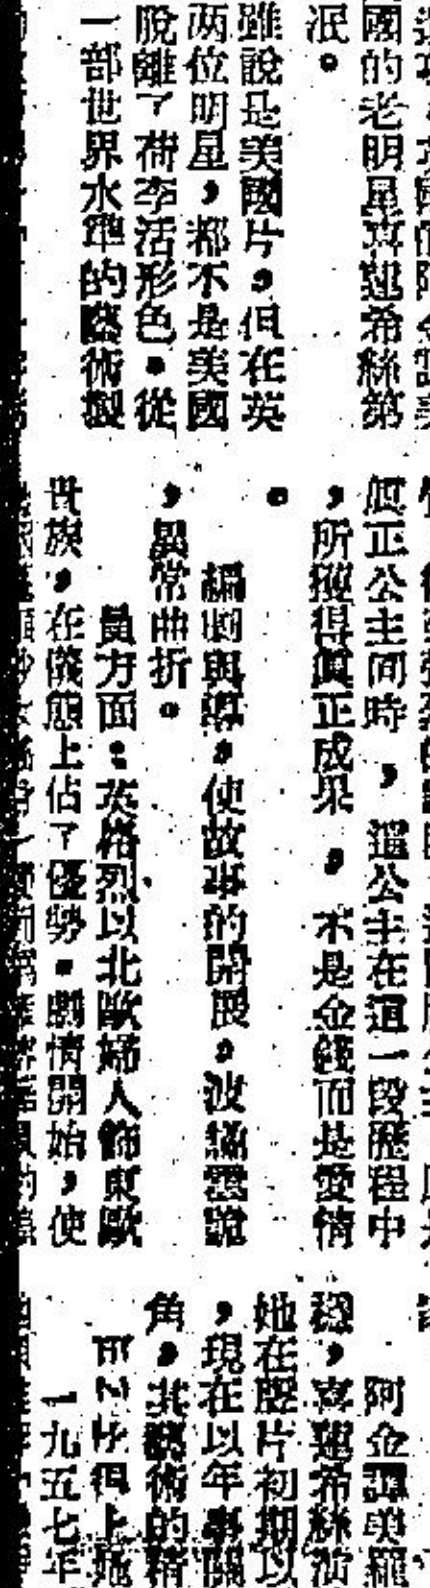 國的老明星喜蓮希絲第
泯。
雖說是美國片，但在英
两位明星，都不是美國
脫離了荷李活形色。從
一部世界水準的藝術製
眞正公主同時，這公主在這一段歷程中
，所獲得眞正成果，不是金錢而是愛情
。
編劇與導，使故事的開展，波譎雲詭
，異常曲折。
員方面：英格烈以北歐婦人飾東歐
世族，在儀態上佔了優勢。劇情開始，使
阿金譚美羅
穩，喜蓮希絲演
她在默片初期以
，現在以年事關
角，其藝術的精
可以比得上她
一九五七年